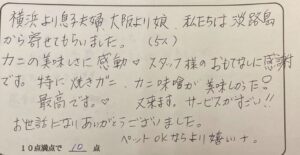 横浜より息子夫婦、大阪より娘、私たちは淡路島
から寄せてもらいました。(5人)
カニの美味しさに感動♡ スタッフ様のおもてなしに感謝
です。特に焼きガニ、カニ味噌が美味しかった!!
最高です。♡ 又来ます。サービスがすごい!!
お世話になりありがとうございました。
10点満点で 10 点 ペットOKならより嬉しいナ。